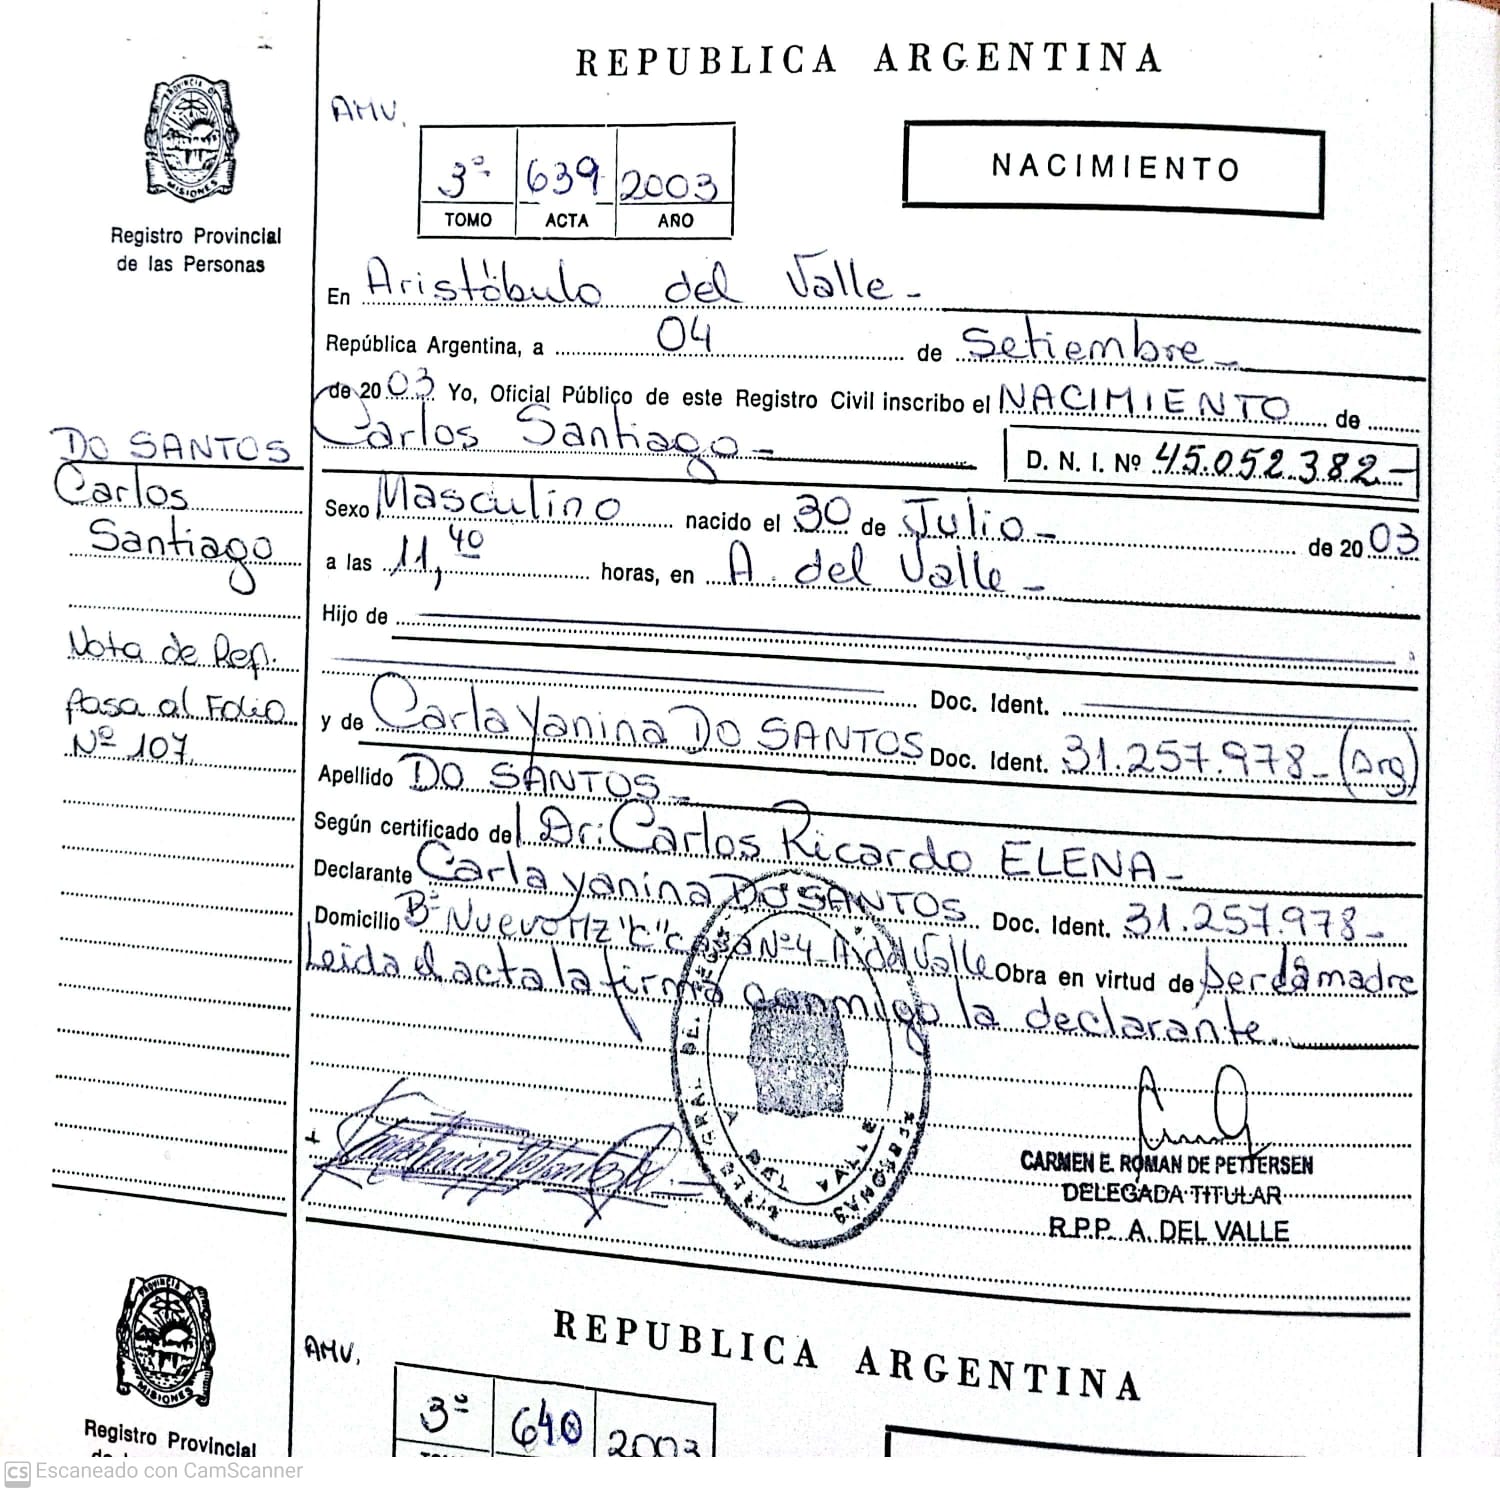 REPUBLICA ARGENTINA
PROVINCIA DE
MISIONES
Registro Provincial
de las Personas
AMV.
3º 639 2003
TOMO ACTA AÑO
NACIMIENTO
En Aristóbulo del Valle -
República Argentina, a 04 de Setiembre -
de 2003 Yo, Oficial Público de este Registro Civil inscribo el NACIMIENTO de
Carlos Santiago -
D. N. I. Nº 45.052.382 -
Sexo Masculino nacido el 30 de Julio - de 2003
a las 11,40 horas, en A. del Valle -
Hijo de
Doc. Ident.
y de Carla Yanina DO SANTOS Doc. Ident. 31.257.978 - (Arg)
Apellido DO SANTOS -
Según certificado del Dr: Carlos Ricardo ELENA -
Declarante Carla Yanina DO SANTOS Doc. Ident. 31.257.978 -
Domicilio Bº Nuevo Mz "C" casa Nº 4 - A. del Valle Obra en virtud de ser la madre
Leida el acta la firma conmigo la declarante.
DO SANTOS
Carlos
Santiago
Nota de Rep.
pasa al Folio
Nº 107
CARMEN E. ROMAN DE PETTERSEN
DELEGADA TITULAR
R.P.P. A. DEL VALLE
PROVINCIA DE
MISIONES
Registro Provincial
REPUBLICA ARGENTINA
AMV.
3º 640 2003
CS Escaneado con CamScanner